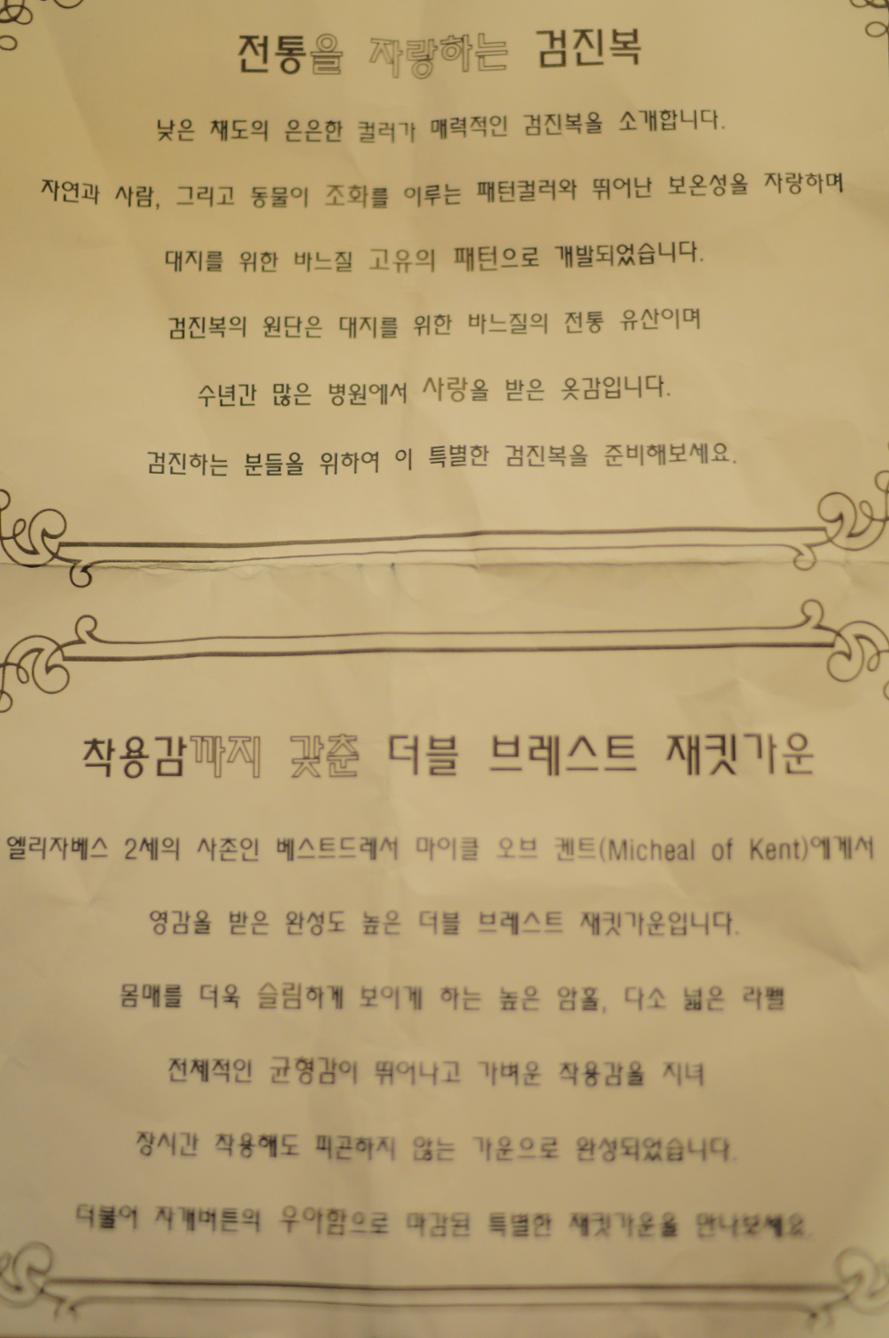 전통을 자랑하는 검진복
낮은 채도의 은은한 컬러가 매력적인 검진복을 소개합니다.
자연과 사람, 그리고 동물이 조화를 이루는 패턴컬러와 뛰어난 보온성을 자랑하며
대지를 위한 바느질 고유의 패턴으로 개발되었습니다.
검진복의 원단은 대지를 위한 바느질의 전통 유산이며
수년간 많은 병원에서 사랑을 받은 옷감입니다.
검진하는 분들을 위하여 이 특별한 검진복을 준비해보세요.
착용감까지 갖춘 더블 브레스트 재킷가운
엘리자베스 2세의 사촌인 베스트드레서 마이클 오브 켄트(Micheal of Kent)에게서
영감을 받은 완성도 높은 더블 브레스트 재킷가운입니다.
몸매를 더욱 슬림하게 보이게 하는 높은 암홀, 다소 넓은 라펠
전체적인 균형감이 뛰어나고 가벼운 착용감을 지녀
장시간 착용해도 피곤하지 않는 가운으로 완성되었습니다.
더불어 자개버튼의 우아함으로 마감된 특별한 재킷가운을 만나보세요.